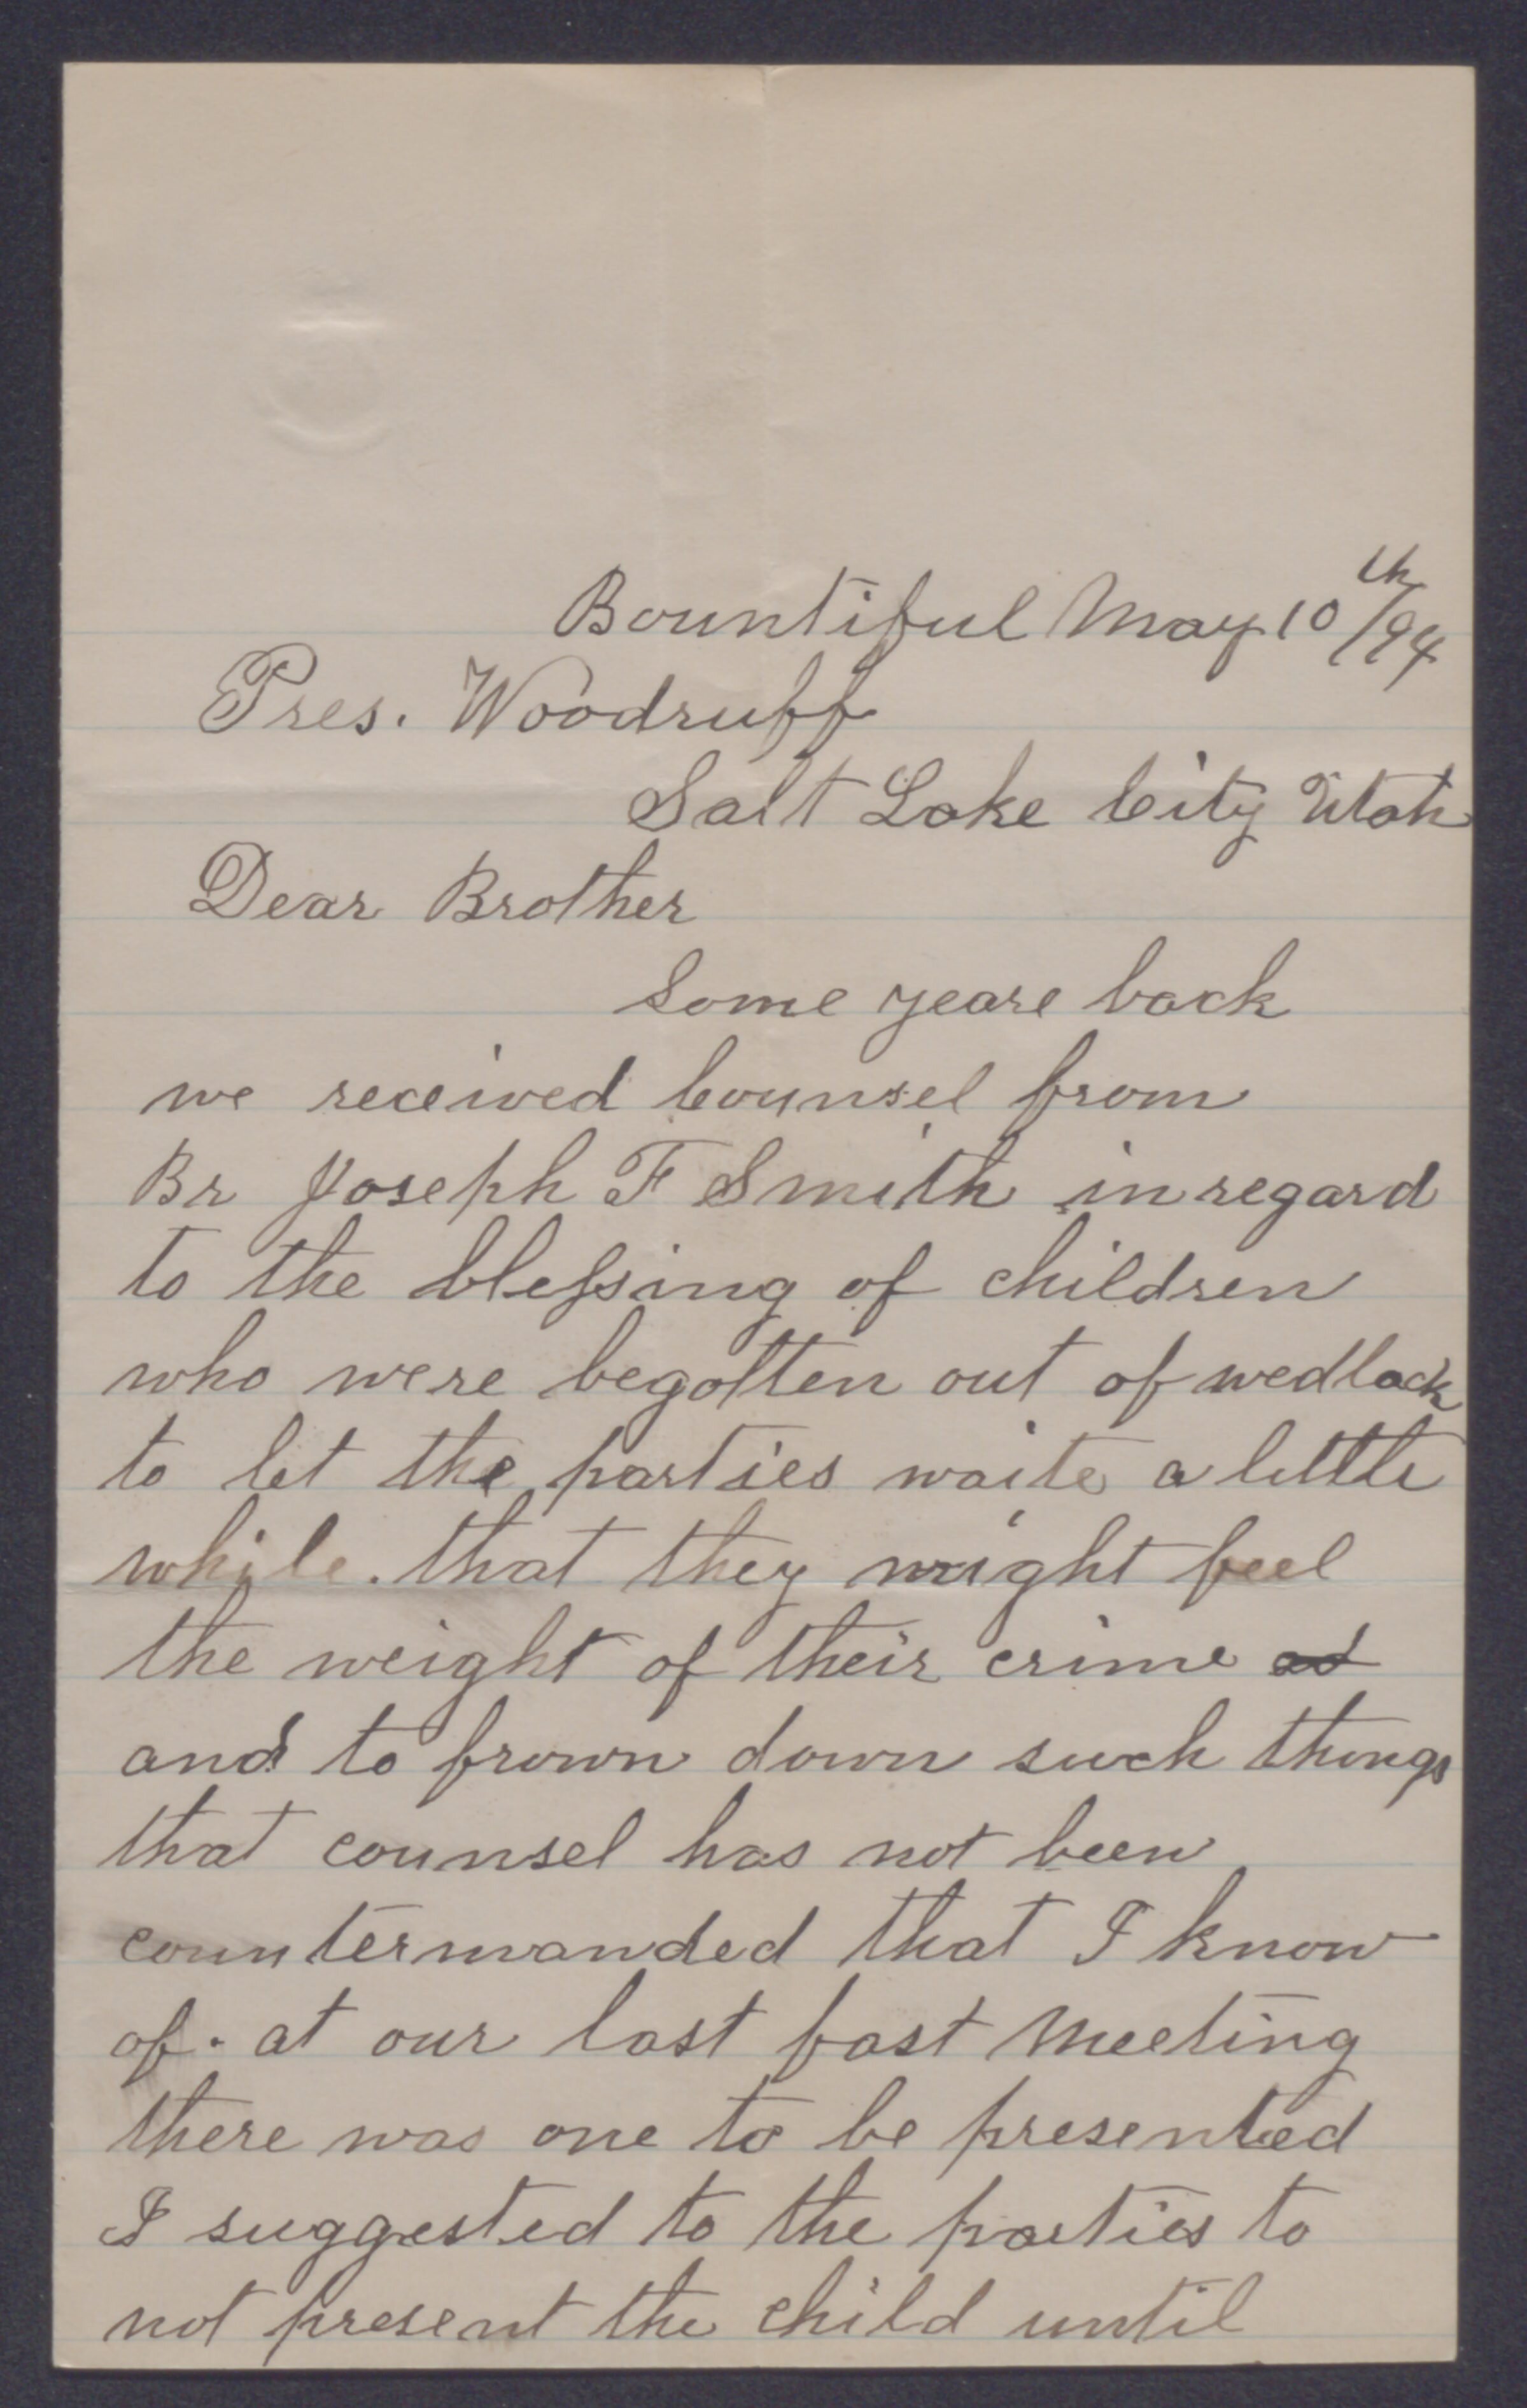 Bountiful May 10th/94
Pres. Woodruff
Salt Lake City Utah
Dear Brother
Some yeare back
we received Counsel from
Br Joseph F Smith in regard
to the blessing of children
who were begotten out of wedlock
to let the parties waite a little
while. that they might feel
the weight of their crime ad
and to frown down such things
that counsel has not been
countermanded that I know
of. at our last fast Meeting
there was one to be presented
I suggested to the parties to
not present the child until